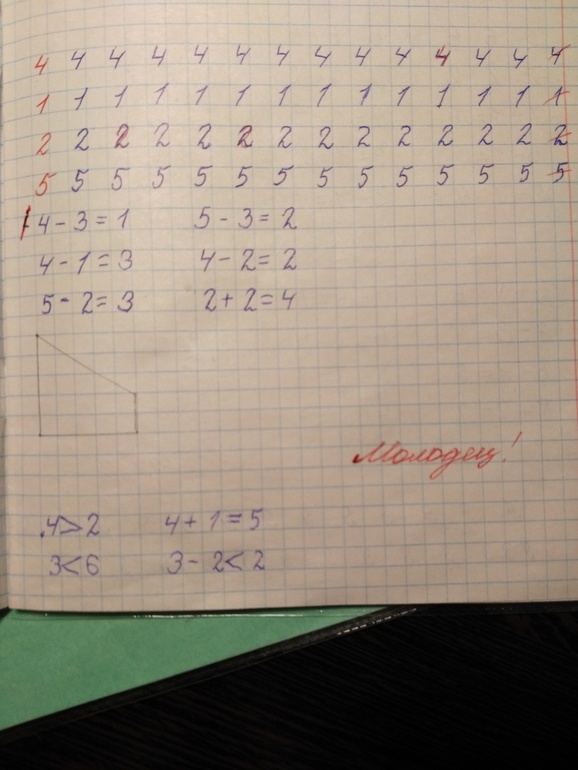 4 4 4 4 4 4 4 4 4 4 4 4 4 4
1 1 1 1 1 1 1 1 1 1 1 1 1 1
2 2 2 2 2 2 2 2 2 2 2 2 2 2
5 5 5 5 5 5 5 5 5 5 5 5 5 5
4 - 3 = 1 5 - 3 = 2
4 - 1 = 3 4 - 2 = 2
5 - 2 = 3 2 + 2 = 4
Молодец!
4 > 2 4 + 1 = 5
3 < 6 3 - 2 < 2